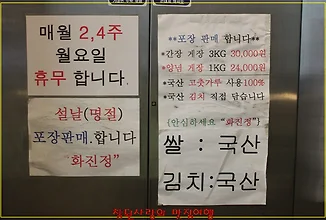 매월 2,4주
월요일
휴무 합니다.
설날(명절)
포장판매.합니다
화진정"
**포장 판매 합니다**
*간장 게장 3KG 30,000원
*양념 게장 1KG 24,000원
*국산 고춧가루 사용100%
*국산 김치 직접 담습니다
{안심하세요 "화진정"}
쌀 : 국산
김치:국산